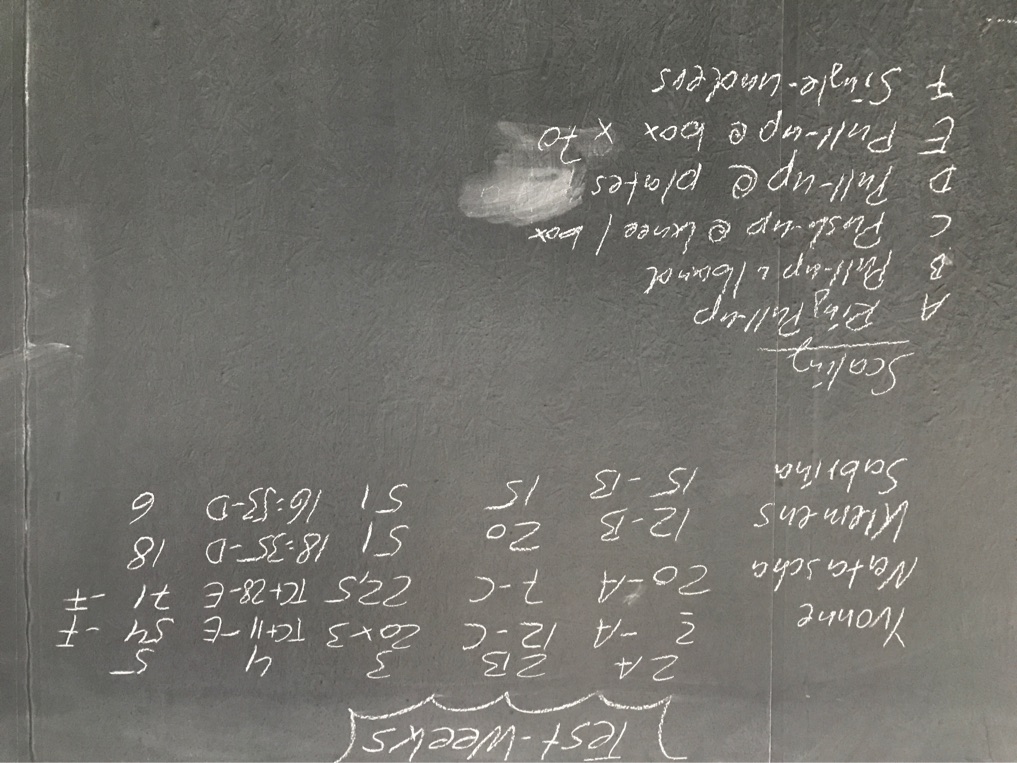 Test-Weeks
2A 2B 3 4 5
Yvonne 2-A 12-C 20x3 TC+11-E 54-F
Natascha 20-A 7-C 22,5 TC+28-E 71-F
Klemens 12-B 20 51 18:35-D 18
Sabrina 15-B 15 51 16:53-D 6
Scaling
A Ring Pull-up
B Pull-up c/band
C Push-up @ knee/box
D Pull-up @ plates
E Pull-up @ box x 70
F Single-unders